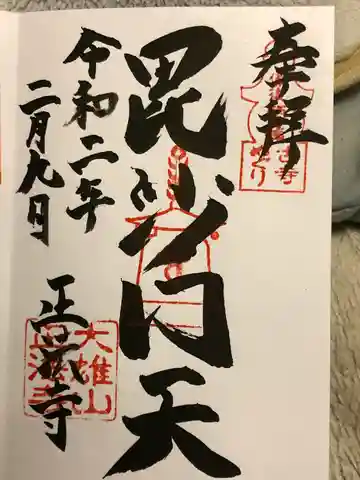 奉拝
毘沙門天
令和二年
二月九日
正蔵寺
大雄山